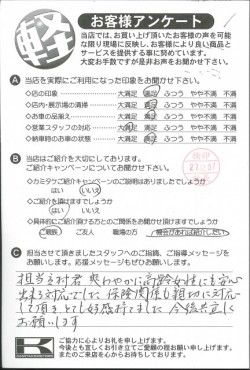 軽
お客様アンケート
当店では、お買い上げ頂いたお客様の声を可能
な限り現場に反映し、お客様により良い商品と
サービスを提供する事に努めています。
大変お手数ですが是非お声をお聞かせ下さい。
A 当店を実際にご利用になった印象をお聞かせ下さい。
◇店の印象 大満足 満足 ふつう やや不満 不満
◇店内・展示場の清掃 大満足 満足 ふつう やや不満 不満
◇お車の品揃え 大満足 満足 ふつう やや不満 不満
◇営業スタッフの対応 大満足 満足 ふつう やや不満 不満
◇納車時のお車の状態 大満足 満足 ふつう やや不満 不満
B 当店はご紹介を大切にしております。
ご紹介キャンペーンについてお聞かせ下さい。
◇カミタケご紹介キャンペーンのご説明はありましたでしょうか
はい いいえ
◇ご紹介を頂けますでしょうか
はい いいえ
◇具体的にご紹介頂ける方とのご関係をお聞かせ頂けますでしょうか
ご親族 ご友人 職場の方
C 担当させて頂きましたスタッフへのご指摘、ご指導メッセージを
お願いします。応援メッセージもぜひお願いします。
担当 君 爽やかに高齢女性にも安心
出来る対応でした 保険関係も親切に対応
して頂きとても好感持てました 今後共宜しく
お願いします
K
ご協力に心よりお礼を申し上げます。
今後とも宜しくお引き立てご愛顧の程お願い申し上げます。
またのご来店を心からお待ちしております。